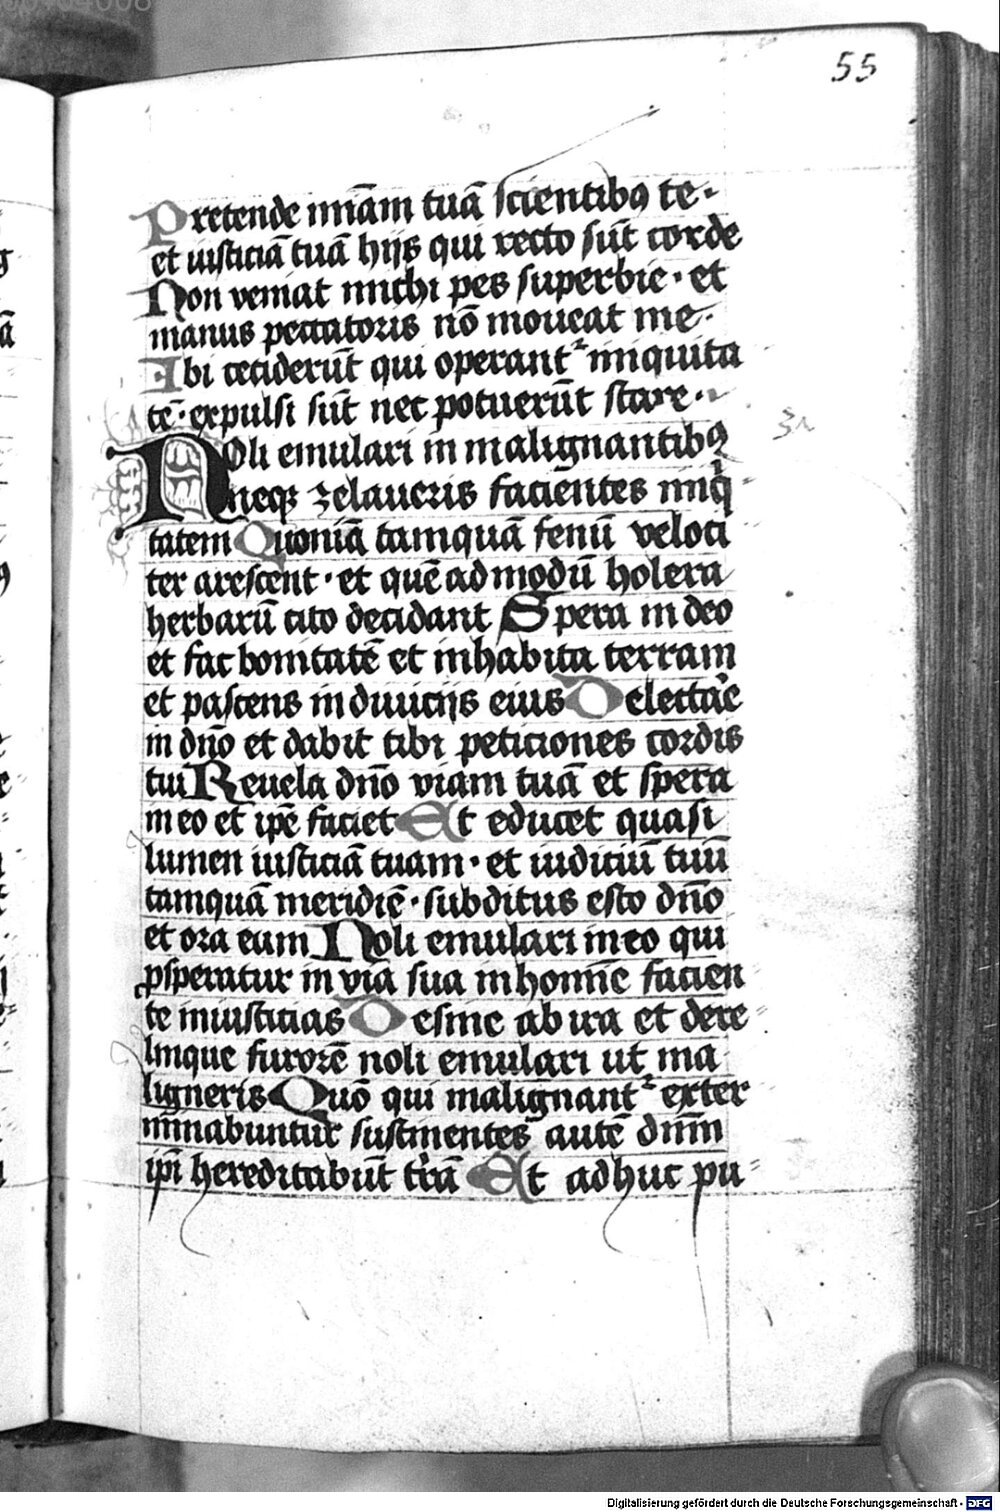 55
Pretende mīam tuā scientibꝯ te·
et iusticiā tuā hijs qui recto sūt corde
Non veniat michi pes superbie · et
manus peccatoris nō moueat me·
Ibi ceciderūt qui operant᷑ iniquita
tē· expulsi sūt nec potuerūt stare·
Noli emulari in malignantibꝯ
neqꝫ zelaueris facientes iniqͥ
tatem Quoniā tamquā fenū veloci
ter arescent · et quē ad modū holera
herbarū cito decidant Spera in deo
et fac bonitatē et inhabita terram
et pasceris in diuicijs eius Delectare
in dn̄o et dabit tibi peticiones cordis
tui Reuela dn̄o viam tuā et spera
in eo et ip̄e faciet Et educet quasi
lumen iusticiā tuam · et iudiciū tuū
tamquā meridiē · subditus esto dn̄o
et ora eum Noli emulari in eo qui
ꝓsperatur in via sua in homīe facien
te iniusticias Desine ab ira et dere
linque furorē noli emulari ut ma
ligneris Quō qui malignant᷑ exter
minabuntur sustinentes autē dn̄m
ip̄i hereditabūt tr̄ā Et adhuc pu
Digitalisierung gefördert durch die Deutsche Forschungsgemeinschaft - DFG